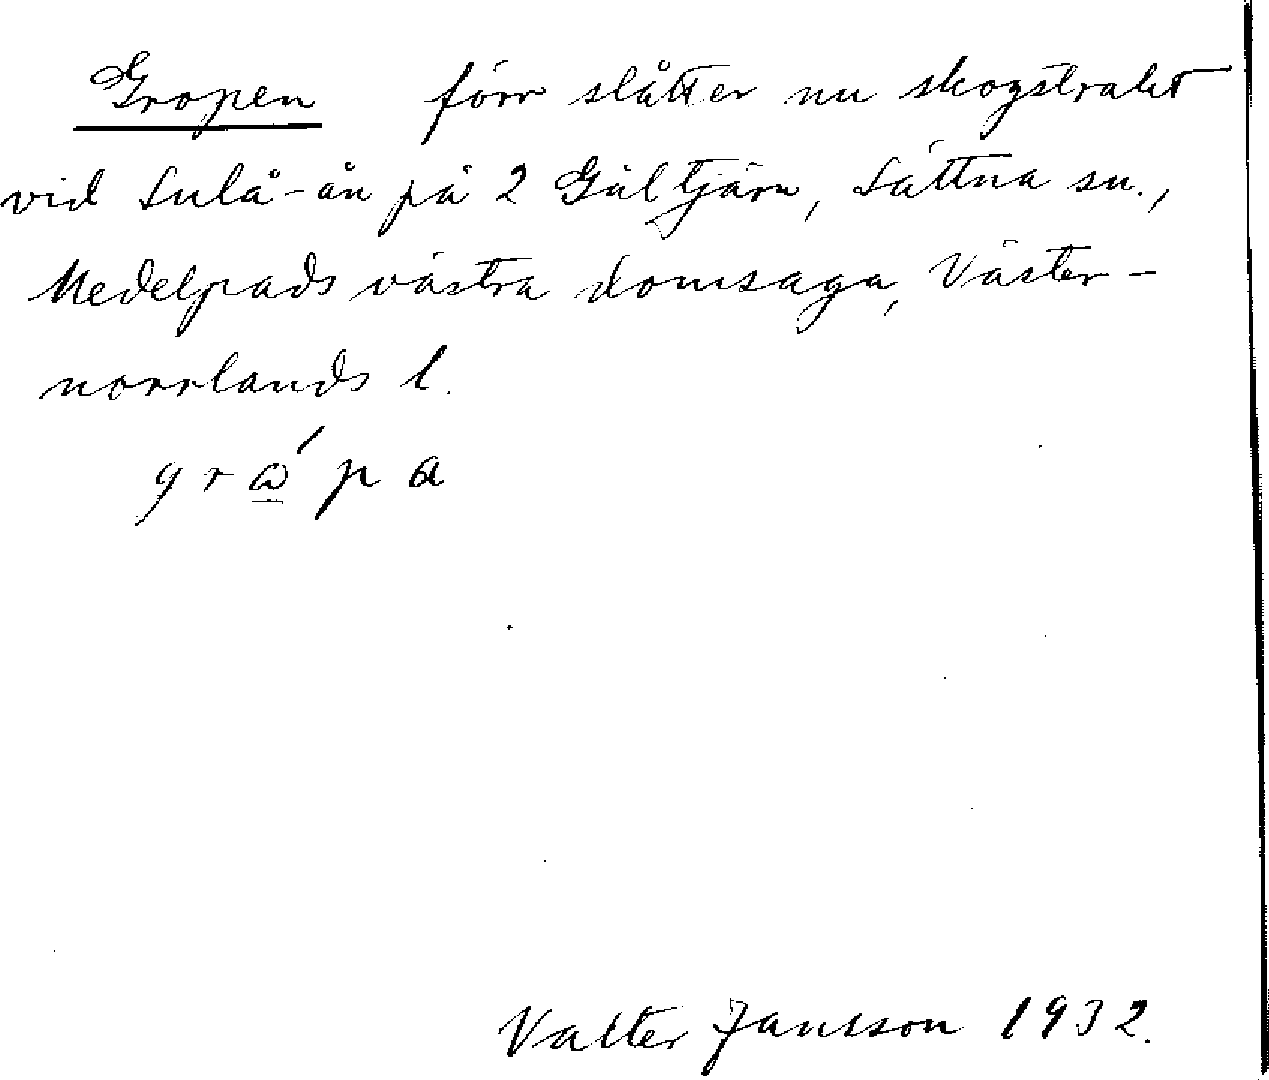 Gropen förr slåtter nu skogstrakt
vid Sulå-ån på 2 Gältjärn, Sättna sn.,
Medelpads västra domsaga, Väster-
norrlands l.
grώ̲pa
Valter Jansson 1932.